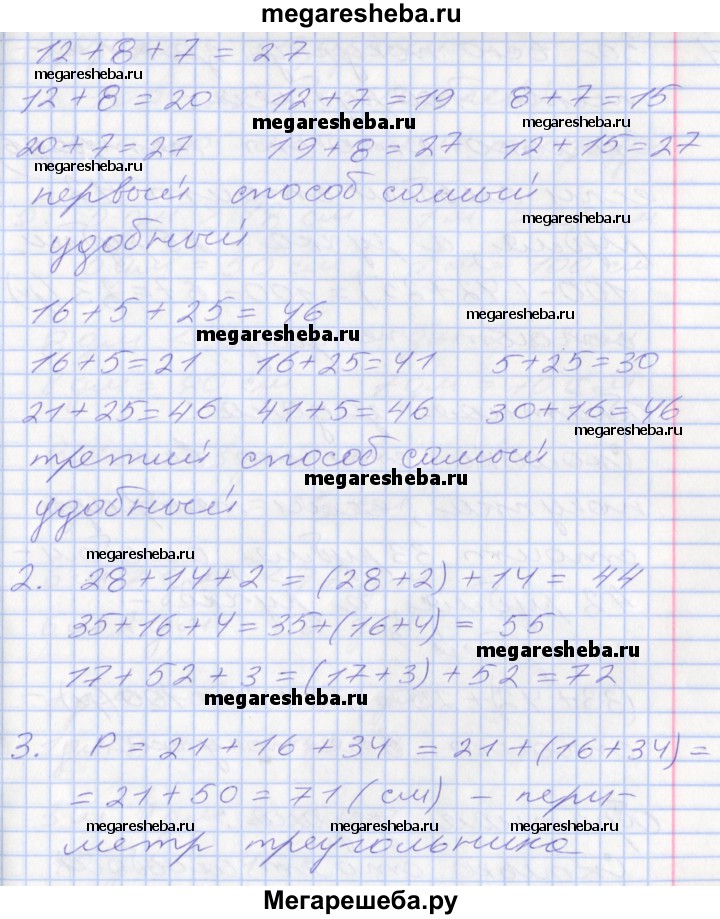 megaresheba.ru
12 + 8 + 7 = 27
megaresheba.ru
12 + 8 = 20 12 + 7 = 19 8 + 7 = 15
megaresheba.ru megaresheba.ru
20 + 7 = 27 19 + 8 = 27 12 + 15 = 27
megaresheba.ru
первый способ самый
megaresheba.ru
удобный
16 + 5 + 25 = 46
megaresheba.ru
megaresheba.ru
16 + 5 = 21 16 + 25 = 41 5 + 25 = 30
21 + 25 = 46 41 + 5 = 46 30 + 16 = 46
megaresheba.ru
третий способ самый
megaresheba.ru
удобный
megaresheba.ru
2. 28 + 14 + 2 = (28 + 2) + 14 = 44
35 + 16 + 4 = 35 + (16 + 4) = 55
megaresheba.ru
17 + 52 + 3 = (17 + 3) + 52 = 72
megaresheba.ru
3. P = 21 + 16 + 34 = 21 + (16 + 34) =
= 21 + 50 = 71 (см) - пери-
megaresheba.ru megaresheba.ru megaresheba.ru
метр треугольника
Мегарешеба.ру